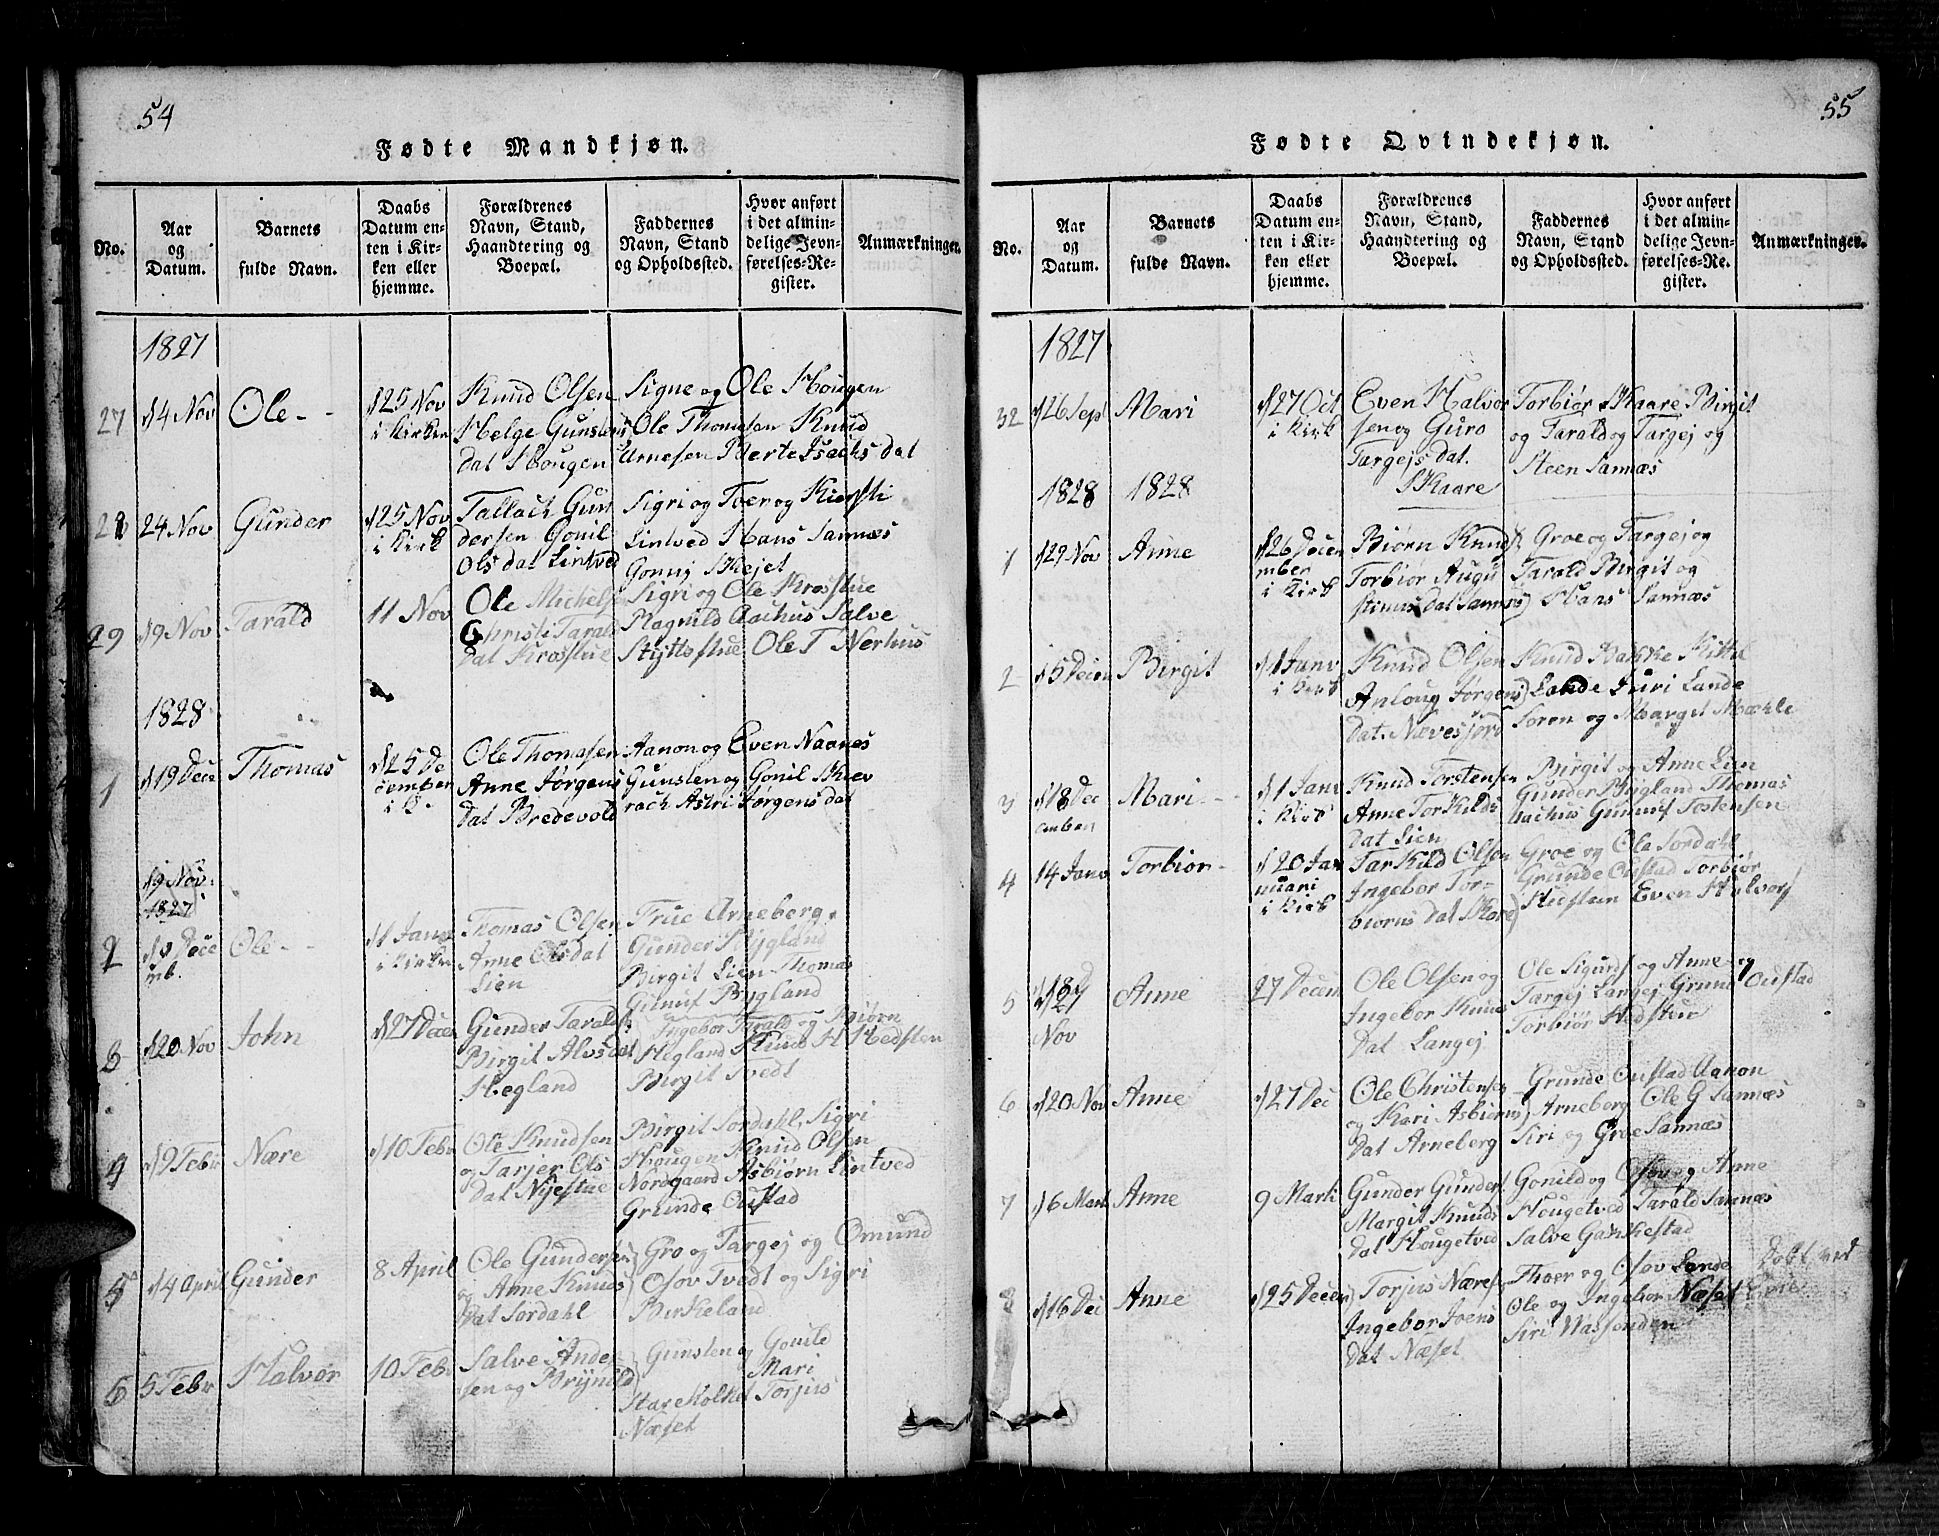 54
Fødte Mandkjøn.
No.
Aar
og
Datum.
Barnets
fulde Navn.
Daabs
Datum en-
ten i Kir-
ken eller
hjemme.
Forældrenes
Navn, Stand,
Haandtering og
Boepæl.
Faddernes
Navn, Stand
og Opholdssted.
Hvor anført
i det almin-
delige Jevn-
førelses-Re-
gister.
Anmærkninger.
1827
27
d 4 Nov
Ole
d 25 Nov
i Kirken
Knud Olsen
Helge Gunslens
Dat Hougen
Signe og Ole Hougen
Ole Thomesen Knud
Arnesen Berte Isachs dat
28
24 Nov
Gunder
d 25 Nov
i Kirk
Tallach Gun
dersen Gonil
Ols dat Lintved
Sigri og Toer og Kiersti
Lintved Hans Sannæs
Skejet
29
d 9 Nov
Tarald
11 Nov
Ole Michelse
Christi Tarald
Dat Krosstue
Sigri og Ole Krosstue
Ragnild Aachus Salve
Ole T Nerhus
1828
1
d 19 Dece
Thomas
d 25 De
cember
Ole Thomasen
Anne Jørgens
Dat Bredevold
Aanon og Even Naanes
Gunslen og Gonil Skiev
rach Astri Jørgens dat
d 9 Nov:
1827
2
Dece
mb.
Ole
d 1 Janu
i Kirken
Thomas Olsen
Anne Olsdat
Lien
True Arneberg
Gunder Bygland
Birgit Lien Thomas
Gunuf Bygland
3
d 20 Nov
John
d 27 Decer
Gunder Taralds
Birgit Alvsdat
Hegland
Ingebor Tarald og Biørn
Hegland Knud H Hedsten
Birgit Tvedt
4
d 9 Febr
Nære
d 10 Febr
Ole Knudsen
og Tarjer Ols
Dat Nyestue
Birgit Sordahl, Sigri
Hougen Knud Olsen
Nordgaard Asbiørn Lintved
Grunde Oustad
5
d 4 April
Gunder
8 April
Ole Gunderse
og Anne Knuds
Dat Sordahl
Gro og Targej og Omund
Osov Tvedt og Sigri
Birkeland
6
5 Febr
Halvor
10 Feb
Salve Ander
sen og Brynild
Gunslen og Gonild
Mari
Stareholtet Torjus
Næset
55
Fødte Qvindekjøn.
No.
Aar
og
Datum.
Barnets
fulde Navn.
Daabs
Datum en-
ten i Kir-
ken eller
hjemme.
Forældrenes
Navn, Stand,
Haandtering og
Boepæl.
Faddernes
Navn, Stand
og Opholdssted.
Hvor anført
i det almin-
delige Jevn-
førelses-Re-
gister.
Anmærkninger.
1827
32
d 26 Sept
Mari
d 27 Oct
i Kirk
Even Halvor
sen og Guro
Targejs dat.
Skaare
Torbiør Skaare Birgit
og Tarald og Targej og
Steen Sannæs
1828
1828
1
d 29 Nov
Anne
d 26 Decem
mber
i Kirk
Biørn Knuds
Torbiør Augu
stinus dat Sannæs
Groe og Targej og
Tarald Birgit og
Hans Sannæs
2
d 5 Decem
Birgit
d 1 Janv
i Kirk
Knud Olsen
Anloug Jørgens
Dat. Nævesjord
Knud Bakke Kittil
Lande Juri Lande
Soren og Margit Mæhle
3
d 18 Dec
ember
Mari
d 1 Janv
i Kirk
Knud Torstensen
Anne Torkilds
Dat Lien
Birgit og Anne Lien
Gunder Bygland Thomas
Aachus Gunuf Tostensen
4
14 Janv
Torbior
d 20 Jan
nuari
i Kirk
Tarkild Olsen
Ingebor Tor-
biorns dat Skare
Groe og Ole Sordahl
Grunde Oustad Torbiør
Even Halvors
5
d 27
Nov
Anne
27 Decem
Ole Olsen og
Ingebor Knuds
Dat Langej
Ole Sigurds og Anne og
Targej Langej Grund Oustad
Torbiør Hedstue
6
d 20 Nov
Anne
d 27 Dec
Ole Christensen
og Kari Asbiorns
Dat Arneberg
Grunde Oustad Aanon
Arneberg Ole G Sannæs
Siri og Groe Sannæs
7
d 6 Mart
Anne
9 Marti
Gunder Gunders
Margit Knuds
Dat Hougetved
Gonild og Osov og Anne
Hougetved Tarald Sannæs
Salve Gakkestad
8
d 16 Dec
Anne
d 25 Decem
Torjus Næres
Ingebor Joens
Dat Næset
Thoer og Osov Lande
Ole og Ingebor Næset
Siri Nassenden
Døbt ved